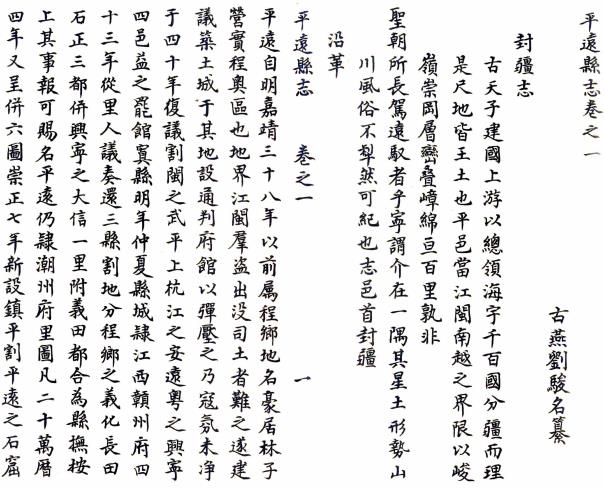 平遠縣志卷之一
古燕劉駿名纂
封疆志
古天子建國上游以總領海宇千百國分疆而理
是尺地皆王土也平邑當江閩南越之界限以峻
嶺崇岡層巒疊嶂綿亘百里孰非
聖朝所長駕遠馭者乎寧謂介在一隅其星土形勢山
川風俗不犁然可紀也志邑首封疆
沿革
平遠縣志 卷之一 一
平遠自明嘉靖三十八年以前屬程鄉地名豪居林子
營實程奧區也地界江閩羣盜出没司土者難之遂建
議築土城于其地設通判府館以彈壓之乃寇氛未净
于四十年復議割閩之武平上杭江之安遠粵之興寧
四邑益之罷館寘縣明年仲夏縣城隸江西贛州府四
十三年從里人議奏還三縣割地分程鄉之義化長田
石正三都併興寧之大信一里附義田都合為縣撫按
上其事報可賜名平遠仍隸潮州府里圖凡二十萬曆
四年又呈併六圖崇正七年新設鎮平割平遠之石窟